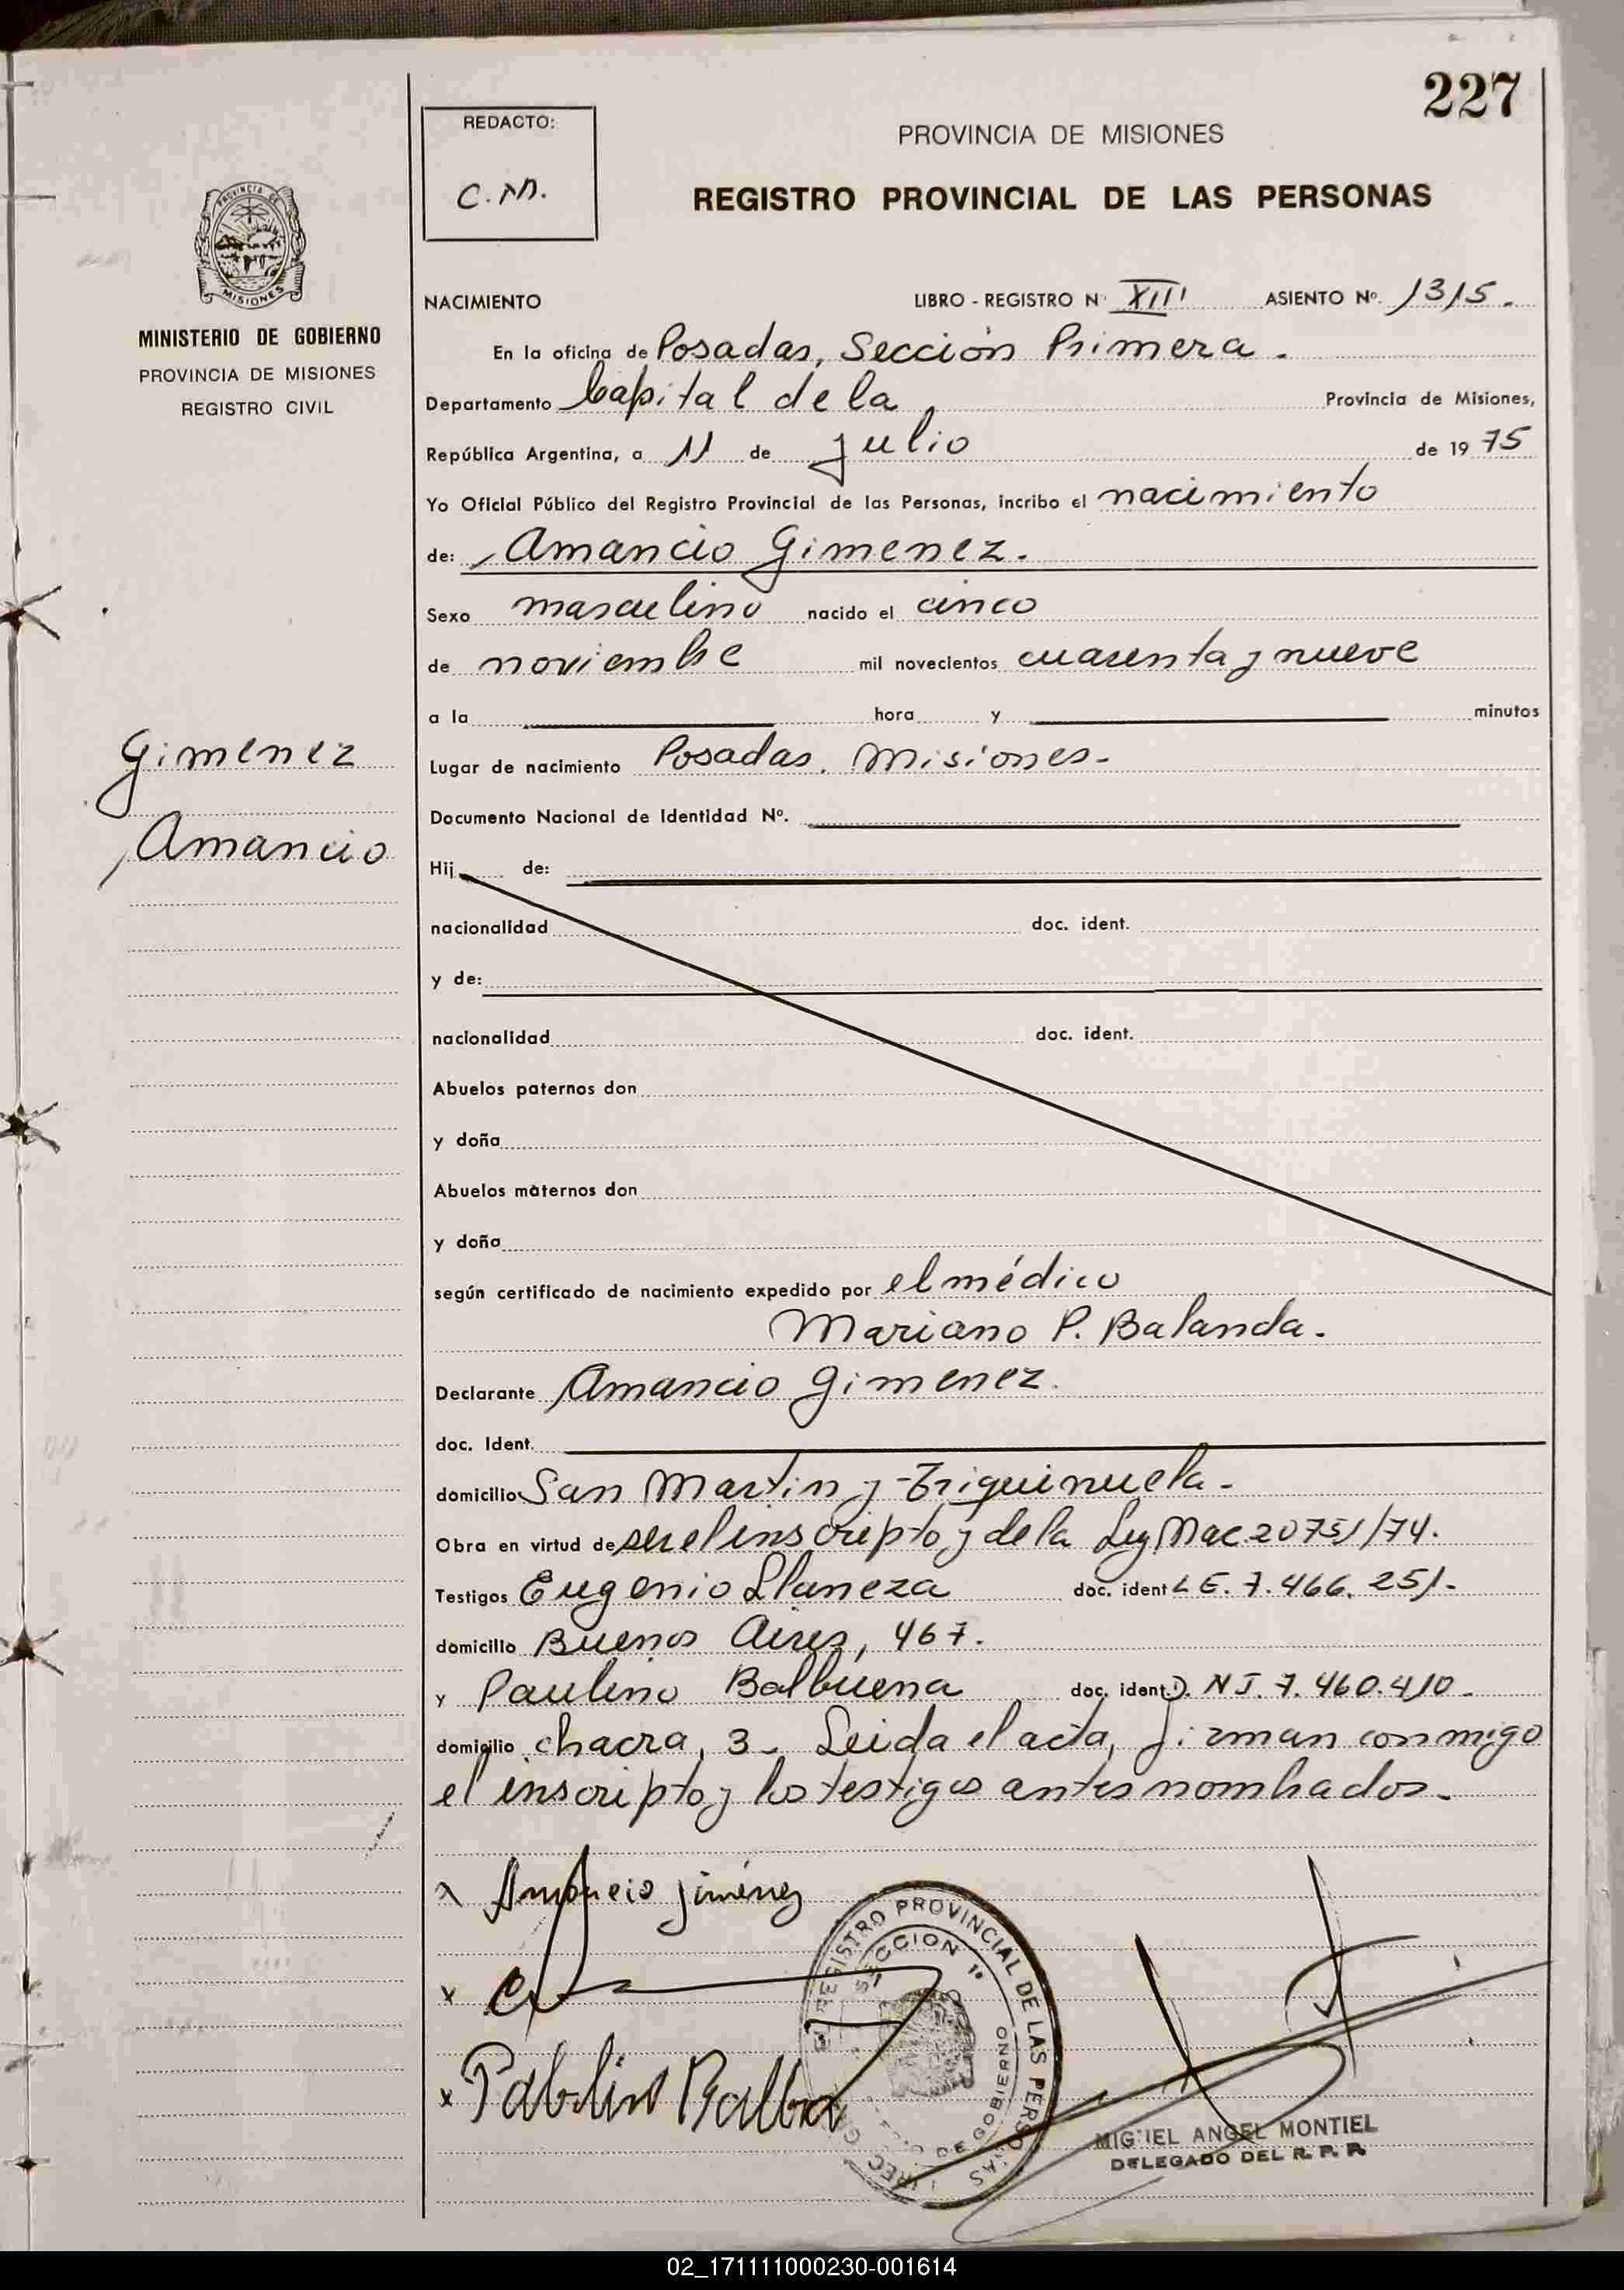 227
REDACTO:
C.M.
PROVINCIA DE MISIONES
REGISTRO PROVINCIAL DE LAS PERSONAS
PROVINCIA DE
MISIONES
MINISTERIO DE GOBIERNO
PROVINCIA DE MISIONES
REGISTRO CIVIL
NACIMIENTO LIBRO - REGISTRO N° XIII ASIENTO Nº. 1315.
En la oficina de Posadas, Sección Primera.
Departamento Capital de la Provincia de Misiones,
República Argentina, a 11 de julio de 1975
Yo Oficial Público del Registro Provincial de las Personas, incribo el nacimiento
de: Amancio Gimenez.
Sexo masculino nacido el cinco
de noviembre mil novecientos cuarenta y nueve
a la hora y minutos
Gimenez
Amancio
Lugar de nacimiento Posadas. Misiones-
Documento Nacional de Identidad Nº.
Hij de:
nacionalidad doc. ident.
y de:
nacionalidad doc. ident.
Abuelos paternos don
y doña
Abuelos maternos don
y doña
según certificado de nacimiento expedido por el médico
Mariano P. Balanda.
Declarante Amancio Gimenez.
doc. Ident.
domicilio San Martin y Triguinuela-
Obra en virtud de ser el inscripto y de la Ley Nac. 20751/74.
Testigos Eugenio Llaneza doc. ident L E. 7.466.251-
domicilio Buenos Aires, 467.
y Paulino Balbuena doc. ident. D. N I. 7.460.410-
domicilio chacra, 3- Leida el acta, firman conmigo
el inscripto y los testigos antes nombrados-
x Amancio Jimenez
x
x Pablino Balbu
REGISTRO PROVINCIAL DE LAS PERSONAS
SECCION 1ª
DE GOBIERNO
MIGUEL ANGEL MONTIEL
DELEGADO DEL R. P. P.
02_171111000230-001614